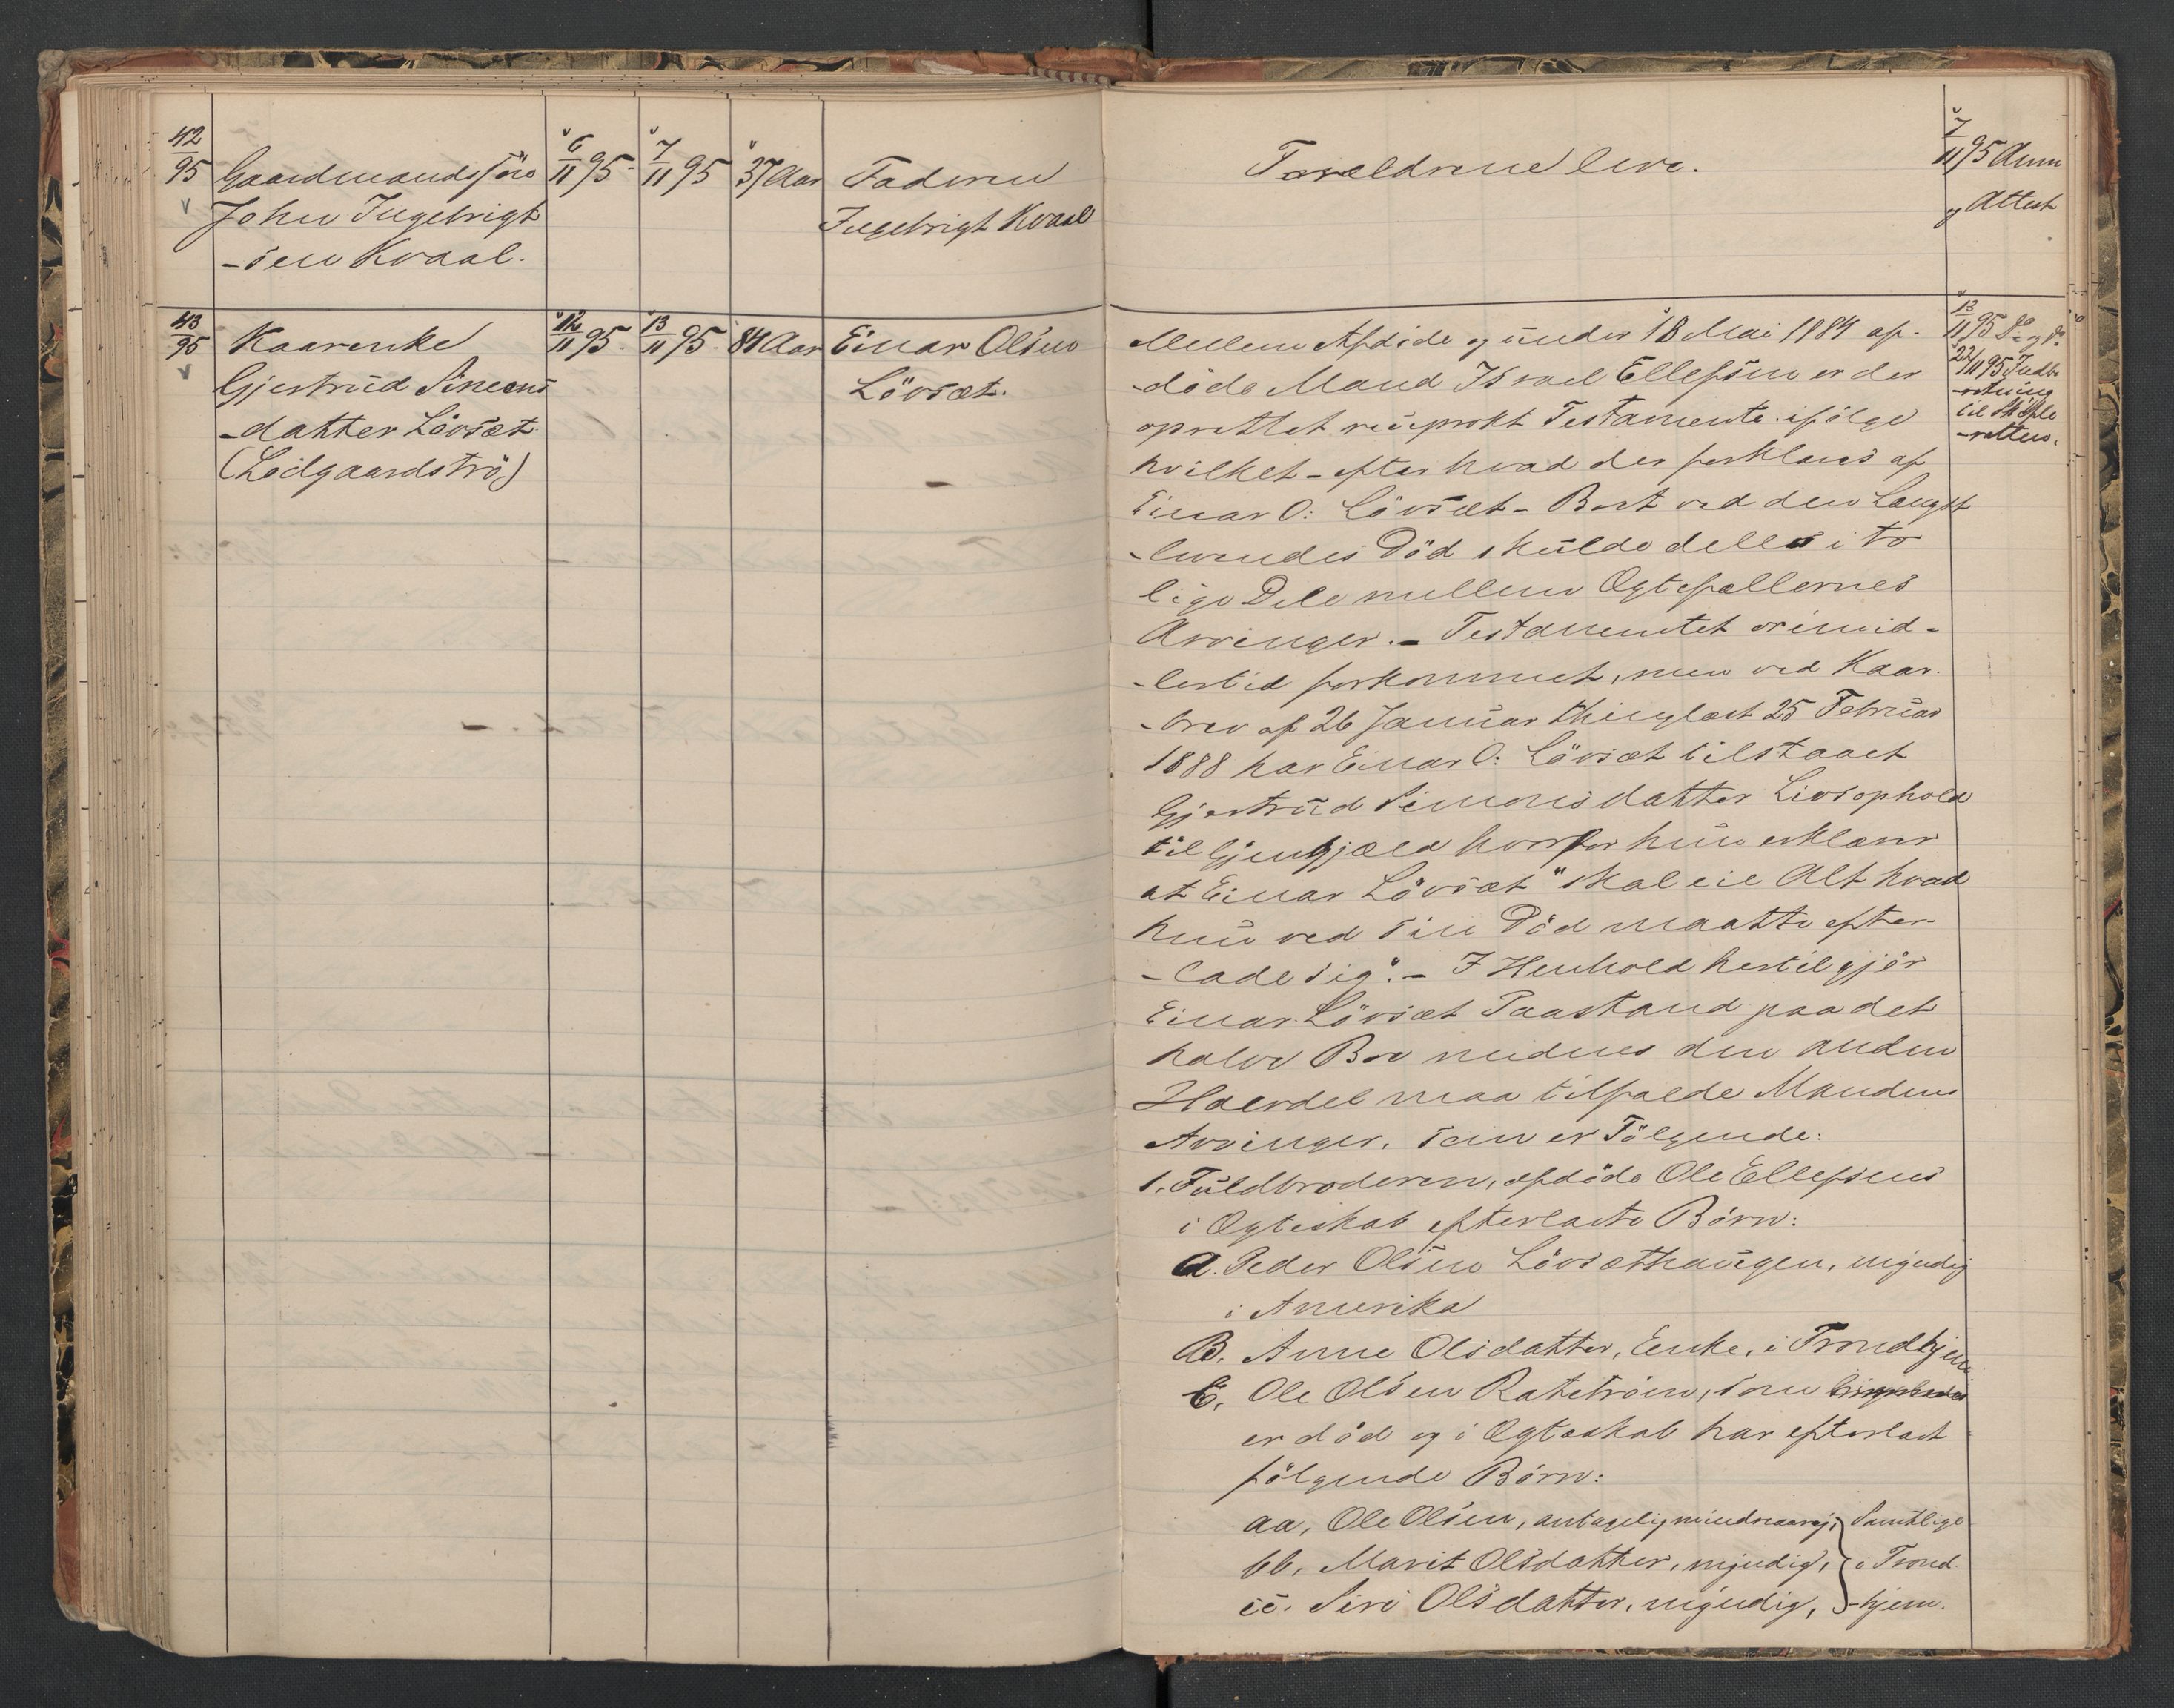 42/95 Gaardmandssøn 6/11 95 7/11 95 37 Aar Faderen
John Ingebrigt Ingebrigt Kvaal
-sen Kvaal.
Forældrene leve.
7/11 95 Anm
og Attest
43/95 Kaarenke 12/11 95. 13/11 95. 84 Aar Einar Olsen
Gjertrud Simons Lövsæt.
-datter Lövsæt
(Ledgaardströ)
Mellem Afdøde og under 18 Mai 1884 af-
-døde Mand Israel Ellefsen er der
oprettet reciprokt Testamente ifølge
hvilket - efter hvad der forklares af
Einar O: Lövsæt - Boet ved den Længst
-levendes Død skulde deles i to
lige Dele mellem Ægtefællernes
Arvinger. - Testamentet er imid-
-lertid forkommet, men ved Kaar-
-brev af 26 Januar thinglæst 25 Februar
1888 har Einar O: Lövsæt tilstaaet
Gjertrud Simonsdatter Livsophold
til Gjengjæld hvorfor hun erklærer
at Einar Lövsæt "skal eie Alt hvad
hun ved sin Död maatte efter-
-lade sig". - I Henhold hertil gjør
Einar Lövsæt Paastand paa det
halve Bo medens den anden
Halvdel maa tilfalde Mandens
Arvinger, som er Følgende:
1. Fuldbroderen, afdøde Ole Ellefsens
i Ægteskab efterladte Børn:
A. Peder Olsen Lövsæthaugen, myndig
i Amerika
B. Anne Olsdatter, Enke, i Trondhjem
C. Ole Olsen Ratström, som
er død og i Ægteskab har efterladt
følgende Börn:
aa, Ole Olsen, antagelig mindreaarig, } Samtlige
bb, Marit Olsdatter, myndig, } i Trond-
cc. Siri Olsdatter, myndig, } -hjem.
13/11 95 Do og Do
22/11 95 Indbe
-retning
til Skifte
-retten.